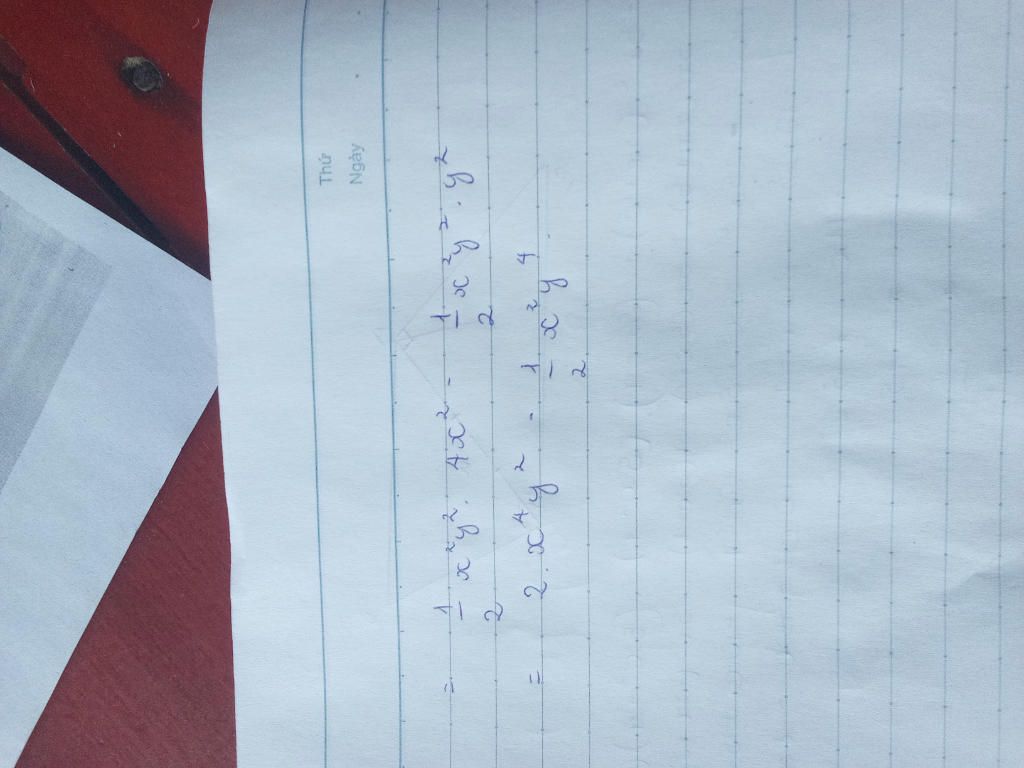 Thứ
Ngày
= 1/2 x²y² . 4x² - 1/2 x²y² . y²
= 2 . x⁴y² - 1/2 x²y⁴